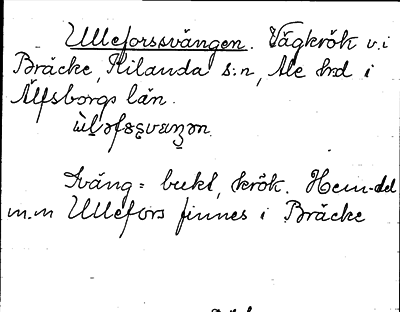 Ulleforssvängen. Vägkrök v. i
Bräcke, Kilanda s:n, Ale hd i
Älfsborgs län.
Sväng = bukt, krök. Hem-del
m.m Ullefors finnes i Bräcke